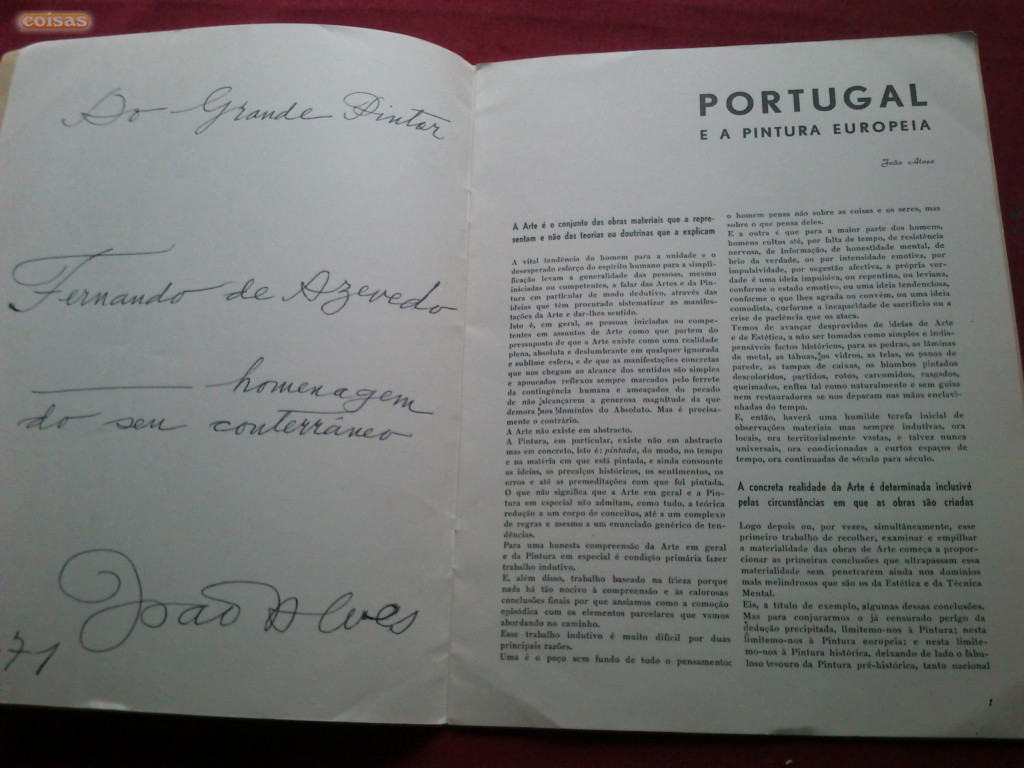 coisas
Ao Grande Pintor
Fernando de Azevedo
homenagem
do seu conterrâneo
João Alves
71
PORTUGAL
E A PINTURA EUROPEIA
João Alves
A Arte é o conjunto das obras materiais que a repre-
sentam e não das teorias ou doutrinas que a explicam
A vital tendência do homem para a unidade e o
desesperado esforço do espírito humano para a simpli-
ficação levam a generalidade das pessoas, mesmo
iniciadas ou competentes, a falar das Artes e da Pin-
tura em particular do modo dedutivo, através das
ideias que têm procurado sistematizar as manifes-
tações da Arte e dar-lhes sentido.
Isto é, em geral, as pessoas iniciadas ou compe-
tentes em assuntos de Arte como que partem do
pressuposto de que a Arte existe como uma realidade
plena, absoluta e deslumbrante em qualquer ignorada
e sublime esfera, e de que as manifestações concretas
que nos chegam ao alcance dos sentidos são simples
e apoucados reflexos sempre marcados pelo ferrete
da contingência humana e ameaçados do pecado
de não alcançarem a generosa magnitude da que
demora nos domínios do Absoluto. Mas é precisa-
mente o contrário.
A Arte não existe em abstracto.
A Pintura, em particular, existe não em abstracto
mas em concreto, isto é: pintada, do modo, no tempo
e na matéria em que está pintada, e ainda consoante
as ideias, os precalços históricos, os sentimentos, os
erros e até as premeditações com que foi pintada.
O que não significa que a Arte em geral e a Pin-
tura em especial não admitam, como tudo, a teórica
redução a um corpo de conceitos, até a um complexo
de regras e mesmo a um enunciado genérico de ten-
dências.
Para uma honesta compreensão da Arte em geral
e da Pintura em especial é condição primária fazer
trabalho indutivo.
E, além disso, trabalho baseado na frieza porque
nada há tão nocivo à compreensão e às calorosas
conclusões finais por que ansiamos como a comoção
episódica com os elementos parcelares que vamos
abordando no caminho.
Esse trabalho indutivo é muito difícil por duas
principais razões.
Uma é o poço sem fundo de todo o pensamento:
o homem pensa não sobre as coisas e os seres, mas
sobre o que pensa deles.
E a outra é que para a maior parte dos homens,
homens cultos até, por falta de tempo, de resistência
nervosa, de informação, de honestidade mental, de
brio da verdade, ou por intensidade emotiva, por
impulsividade, por sugestão afectiva, a própria ver-
dade é uma ideia impulsiva, ou repentina, ou leviana,
conforme o estado emotivo, ou uma ideia tendenciosa,
conforme o que lhes agrada ou convém, ou uma ideia
comodista, conforme a incapacidade de sacrifício ou a
crise de paciência que os ataca.
Temos de avançar desprovidos de ideias de Arte
e de Estética, a não ser tomadas como simples e indis-
pensáveis factos históricos, para as pedras, as lâminas
de metal, as tábuas, os vidros, as telas, os panos de
parede, as tampas de caixas, os biombos pintados
descoloridos, partidos, rotos, carcomidos, rasgados,
queimados, enfim tal como naturalmente e sem guias
nem restauradores se nos deparam nas mãos enclavi-
nhadas do tempo.
E, então, haverá uma humilde tarefa inicial de
observações materiais mas sempre indutivas, ora
locais, ora territorialmente vastas, e talvez nunca
universais, ora condicionadas a curtos espaços de
tempo, ora continuadas de século para século.
A concreta realidade da Arte é determinada inclusivé
pelas circunstâncias em que as obras são criadas
Logo depois ou, por vezes, simultâneamente, esse
primeiro trabalho de recolher, examinar e empilhar
a materialidade das obras de Arte começa a propor-
cionar as primeiras conclusões que ultrapassam essa
materialidade sem penetrarem ainda nos domínios
mais melindrosos que são os da Estética e da Técnica
Mental.
Eis, a título de exemplo, algumas dessas conclusões.
Mas para conjurarmos o já censurado perigo da
dedução precipitada, limitemo-nos à Pintura; nesta
limitemo-nos à Pintura europeia; e nesta limite-
mo-nos à Pintura histórica, deixando de lado o fabu-
loso tesouro da Pintura pré-histórica, tanto nacional
1